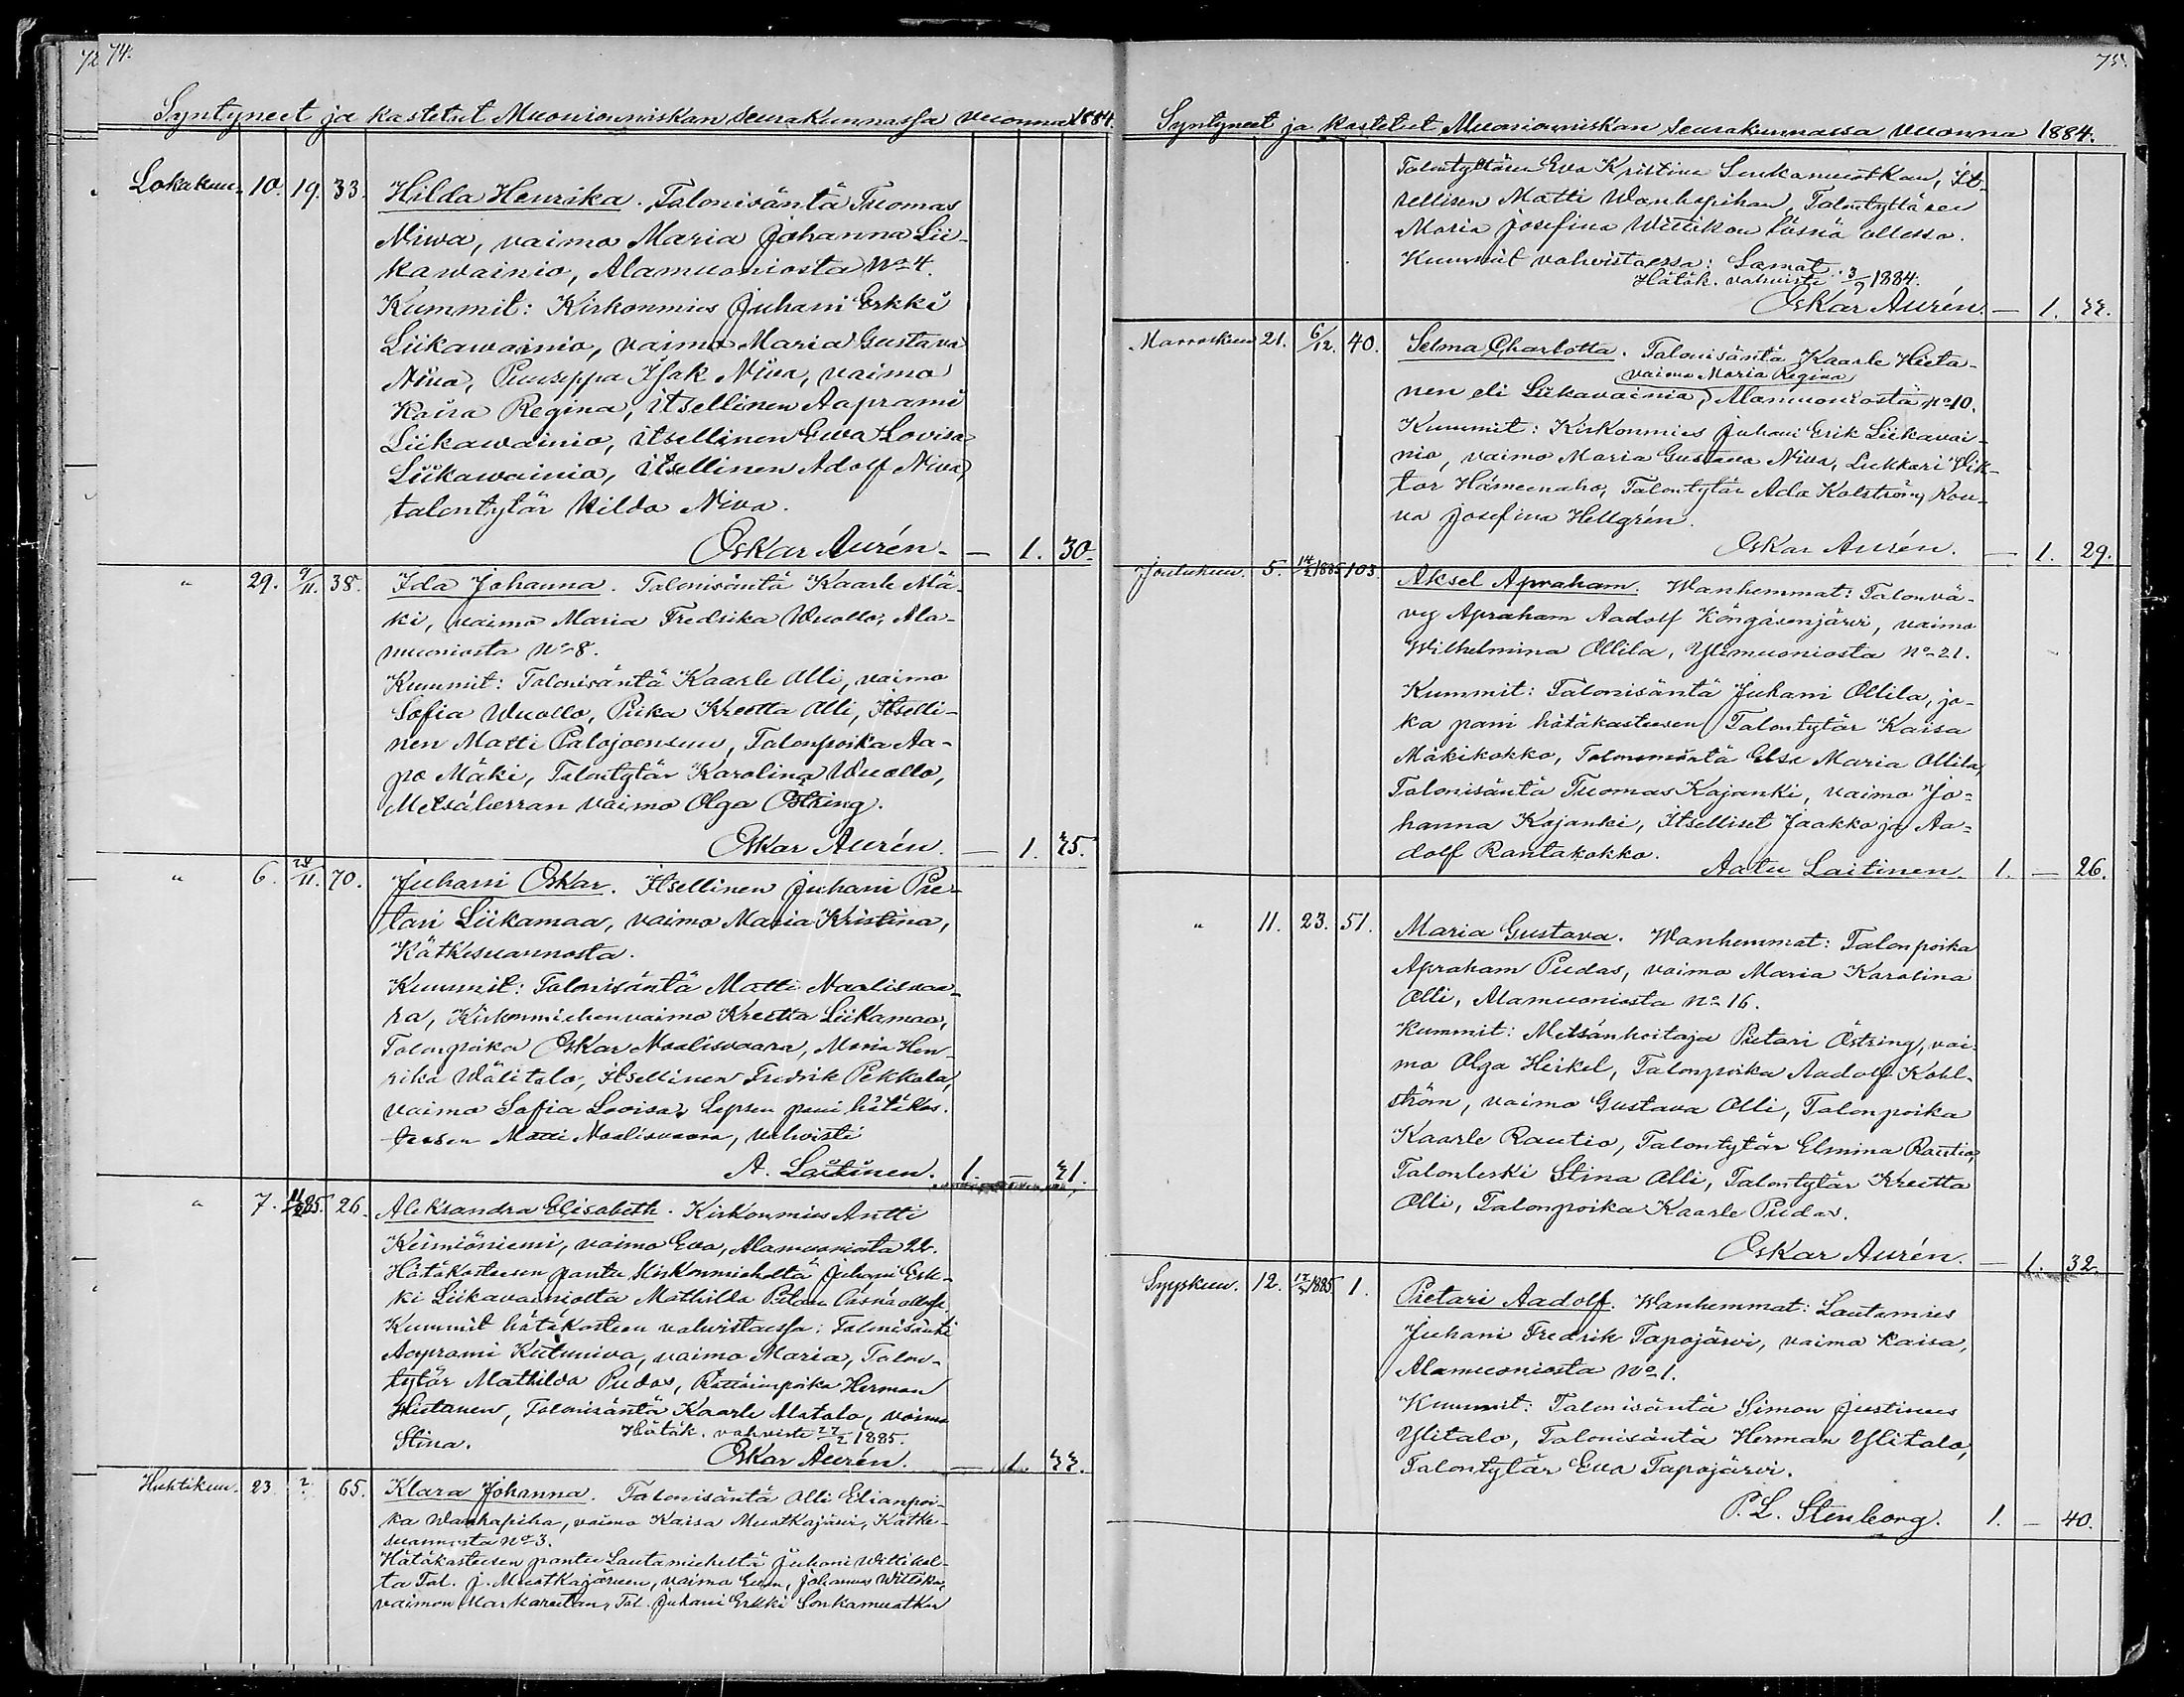 72 74.
Syntyneet ja kastetut Muonionniskan seurakunnassa vuonna 1884.
Lokakuu. 10. 19. 33. Hilda Henrika. Talonisäntä Tuomas
Niwa, vaimo Maria Johanna Lii-
kawainio, Alamuoniosta No 4.
Kummit: Kirkonmies Juhani Erkki
Liikawainio, vaimo Maria Gustava
Niva, Puuseppa Isak Niva, vaimo
Kaisa Regina, itsellinen Aaprami
Liikawainio, itsellinen Ewa Lovisa
Liikawainio, itsellinen Adolf Niva,
talontytär Hilda Niva.
Oskar Aurén. — 1. 30.
" 29. 9/11. 38. Ida Johanna. Talonisäntä Kaarle Mä-
ki, vaimo Maria Fredrika Wuollo, Ala-
muoniosta No 8.
Kummit: Talonisäntä Kaarle Olli, vaimo
Sofia Wuollo, Piika Kreetta Olli, Itselli-
nen Matti Palojoensuu, Talonpoika Aa-
po Mäki, Talontytär Karolina Wuollo,
Metsäherran vaimo Olga Östring.
Oskar Aurén. — 1. 25.
" 6. /11. 70. Juhani Oskar. Itsellinen Juhani Pie-
tari Liikamaa, vaimo Maria Kristina,
Kätkesuannosta.
Kummit: Talonisäntä Matti Maalisvaa-
ra, Kirkonmiehen vaimo Kreetta Liikamaa,
Talonpoika Oskar Maalisvaara, Maria Hen-
rika Wälitalo, itsellinen Fredrik Pekkala,
vaimo Sofia Lovisa. Lapsen pani hätäkas-
teesen Matti Maalisvaara, vahvisti
A. Laitinen. 1. — 21.
" 7. 85. 26. Aleksandra Elisabeth. Kirkonmies Antti
Keimiöniemi, vaimo Eva, Alamuoniosta 22.
Hätäkasteesen pantu Kirkonmieheltä Juhani Erk-
ki Liikavainiolta Mathilda läsnä ollessa.
Kummit hätäkasteen vahvistaessa: Talonisäntä
Aaprami Kutuniva, vaimo Maria, Talon-
tytär Mathilda Pudas, Herman
Hietanen, Talonisäntä Kaarle Matalo, vaimo
Stina. Hätäk. vahvisti 27/2 1885.
Oskar Aurén. — 1. 33.
Huhtikuu. 23. ? 65. Klara Johanna. Talonisäntä Olli Elianpoi-
ka Wanhapiha, vaimo Kaisa Muotkajärvi, Kätke-
suannosta No 3.
Hätäkasteesen pantu Lautamieheltä Juhani Wittikol-
ta Tal. j. Muotkajärven, vaimo Evan, Johannes Wittiko,
vaimon Markareetan, Tal. Juhani Erkki Sonkamuotkan
75.
Syntyneet ja kastetut Muonionniskan seurakunnassa vuonna 1884.
Talontyttären Eva Kristina Sonkamuotkan, It-
sellisen Matti Wanhapihan, Talontyttären
Maria Josefina Wittikon läsnä ollessa.
Kummit vahvistaessa: Samat.
Hätäk. vahvisti 3/9 1884.
Oskar Aurén. — 1. 33.
Marraskuu 21. 6/12. 40. Selma Charlotta. Talonisäntä Kaarle Hieta-
vaimo Maria Regina
nen eli Liikavainio, Alamuoniosta No 10.
Kummit: Kirkonmies Juhani Erik Liikavai-
nio, vaimo Maria Gustava Niva, Lukkari Vik-
tor Hämeenaho, Talontytär Ada Kolström, Rou-
va Josefina Hellgrén.
Oskar Aurén. — 1. 29.
Joulukuu. 5. 14/2 1885 103. Aksel Apraham. Wanhemmat: Talonvä-
vy Apraham Aadolf Köngäsenjärvi, vaimo
Wilhelmina Ollila, Ylimuoniosta No 21.
Kummit: Talonisäntä Juhani Ollila, jo-
ka pani hätäkasteesen, Talontytär Kaisa
Mäkikokko, Talonemäntä Elsa Maria Ollila,
Talonisäntä Tuomas Kajanki, vaimo Jo-
hanna Kajanki, Itselliset Jaakko ja Aa-
dolf Rantakokko.
Aatu Laitinen. 1. — 26.
" 11. 23. 51. Maria Gustava. Wanhemmat: Talonpoika
Apraham Pudas, vaimo Maria Karolina
Olli, Alamuoniosta No 16.
Kummit: Metsänhoitaja Pietari Östring, vai-
mo Olga Heikel, Talonpoika Aadolf Kohl-
ström, vaimo Gustava Olli, Talonpoika
Kaarle Rautio, Talontytär Elmina Rautio,
Talonleski Stina Olli, Talontytär Kreetta
Olli, Talonpoika Kaarle Pudas.
Oskar Aurén. — 1. 32.
Syyskuu. 12. 1885 1. Pietari Aadolf. Wanhemmat: Lautamies
Juhani Fredrik Tapojärvi, vaimo Kaisa,
Alamuoniosta No 1.
Kummit: Talonisäntä Simon Justinus
Ylitalo, Talonisäntä Herman Ylitalo,
Talontytär Eva Tapojärvi.
P. L. Stenborg. 1. — 40.